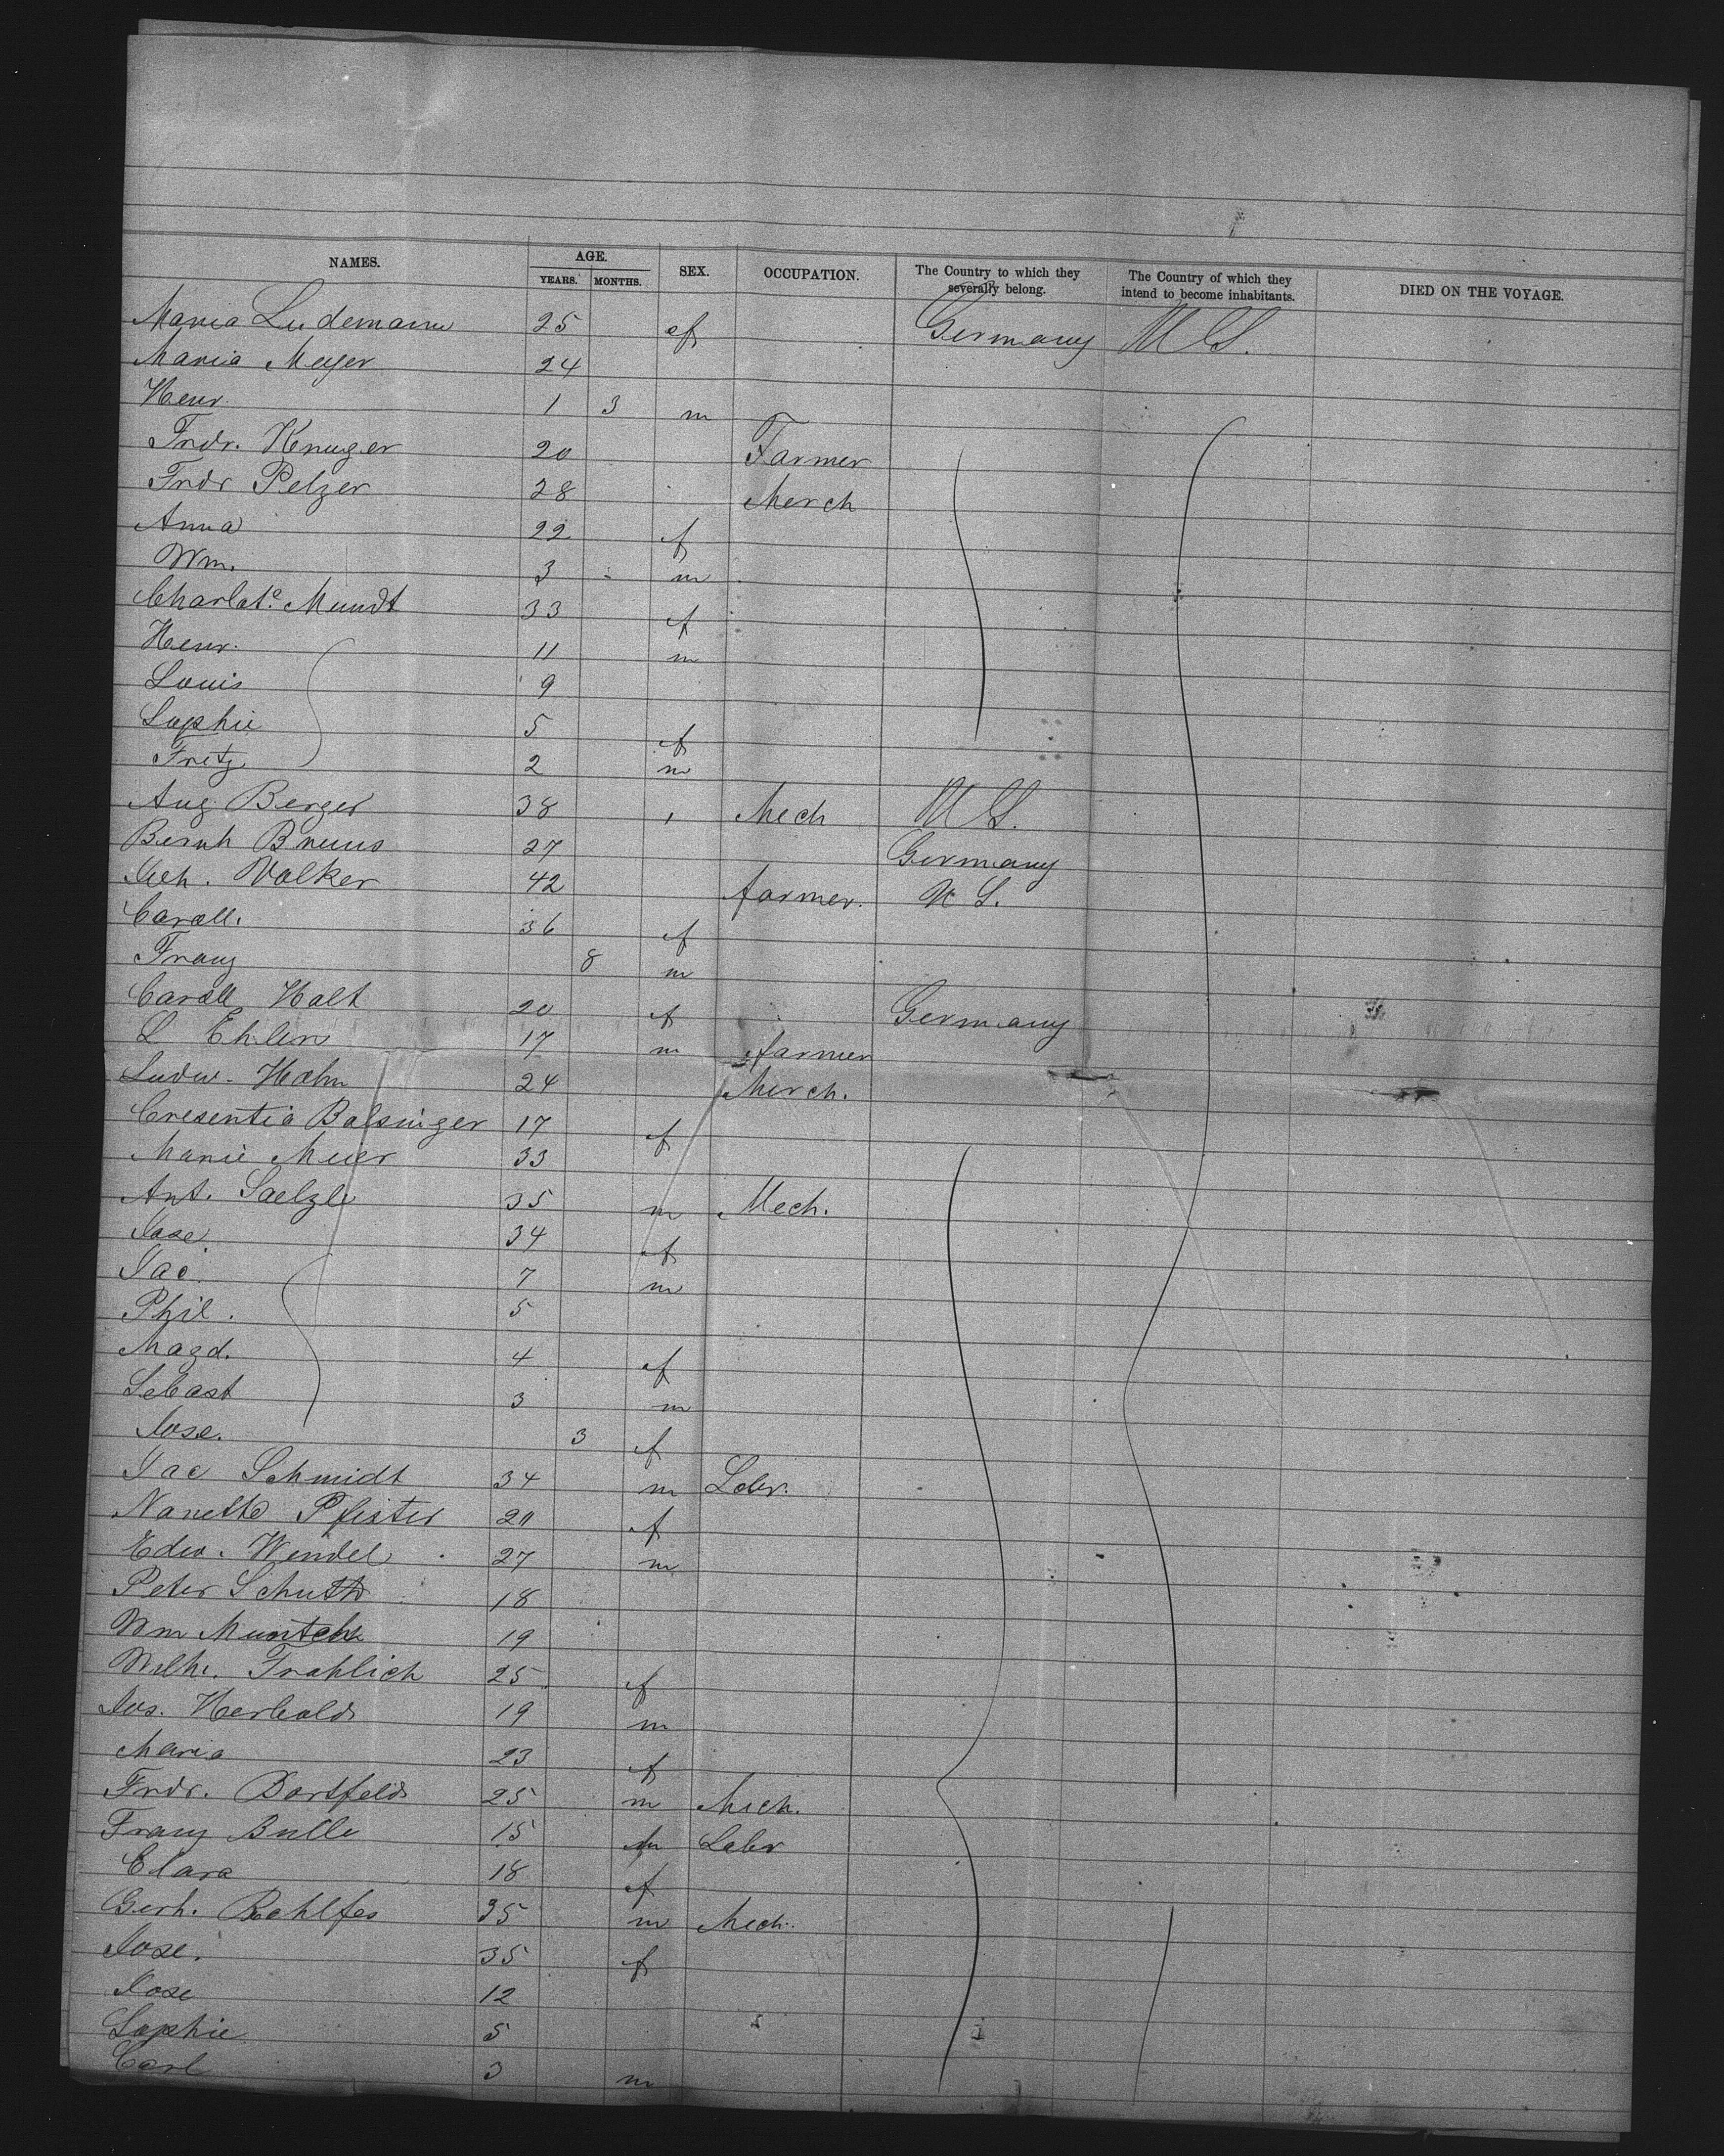 NAMES. AGE. SEX. OCCUPATION. The Country to which they severally belong. The Country of which they intend to become inhabitants. DIED ON THE VOYAGE.
YEARS. MONTHS.
Maria Ludemann 25 f Germany U S.
Maria Meyer 24
Henr. 1 3 m
Fridr. Kruger 20 Farmer
Fridr Pelzer 28 Merch
Anna 22 f
Wm. 3 m
Charlote. Mundt 33 f
Henr. 11 m
Louis 9
Sophie 5 f
Fritz 2 m
Aug Berger 38 Mech U S.
Bernh Bruns 27 Germany
Volker 42 farmer. U S.
Caroll. 36 f
Franz 8 m
Caroll Holt 20 f Germany
L Ehlen 17 m farmer
Ludw. Hahn 24 Merch.
Cresentia Balsinger 17 f
Marie Meier 33
Ant. Saelzle 35 m Mech.
Jose 34 f
Jac. 7 m
Phil. 5
Magd. 4 f
Sebast 3 m
Jose. 3 f
Jac Schmidt 34 m Labr.
Nanette Pfister 20 f
Edw. Wendel 27 m
Peter Schutt 18
Wm 19
Wilh. Frohlich 25 f
Jos. Herbold 19 m
Maria 23 f
Fridr. Bartfeld 25 m Mech.
Franz Bulle 15 m Labr
Clara 18 f
Gerh. Rohlfes 35 m Mech.
Jose. 35 f
Jose 12
Sophie 5
Carl 3 m